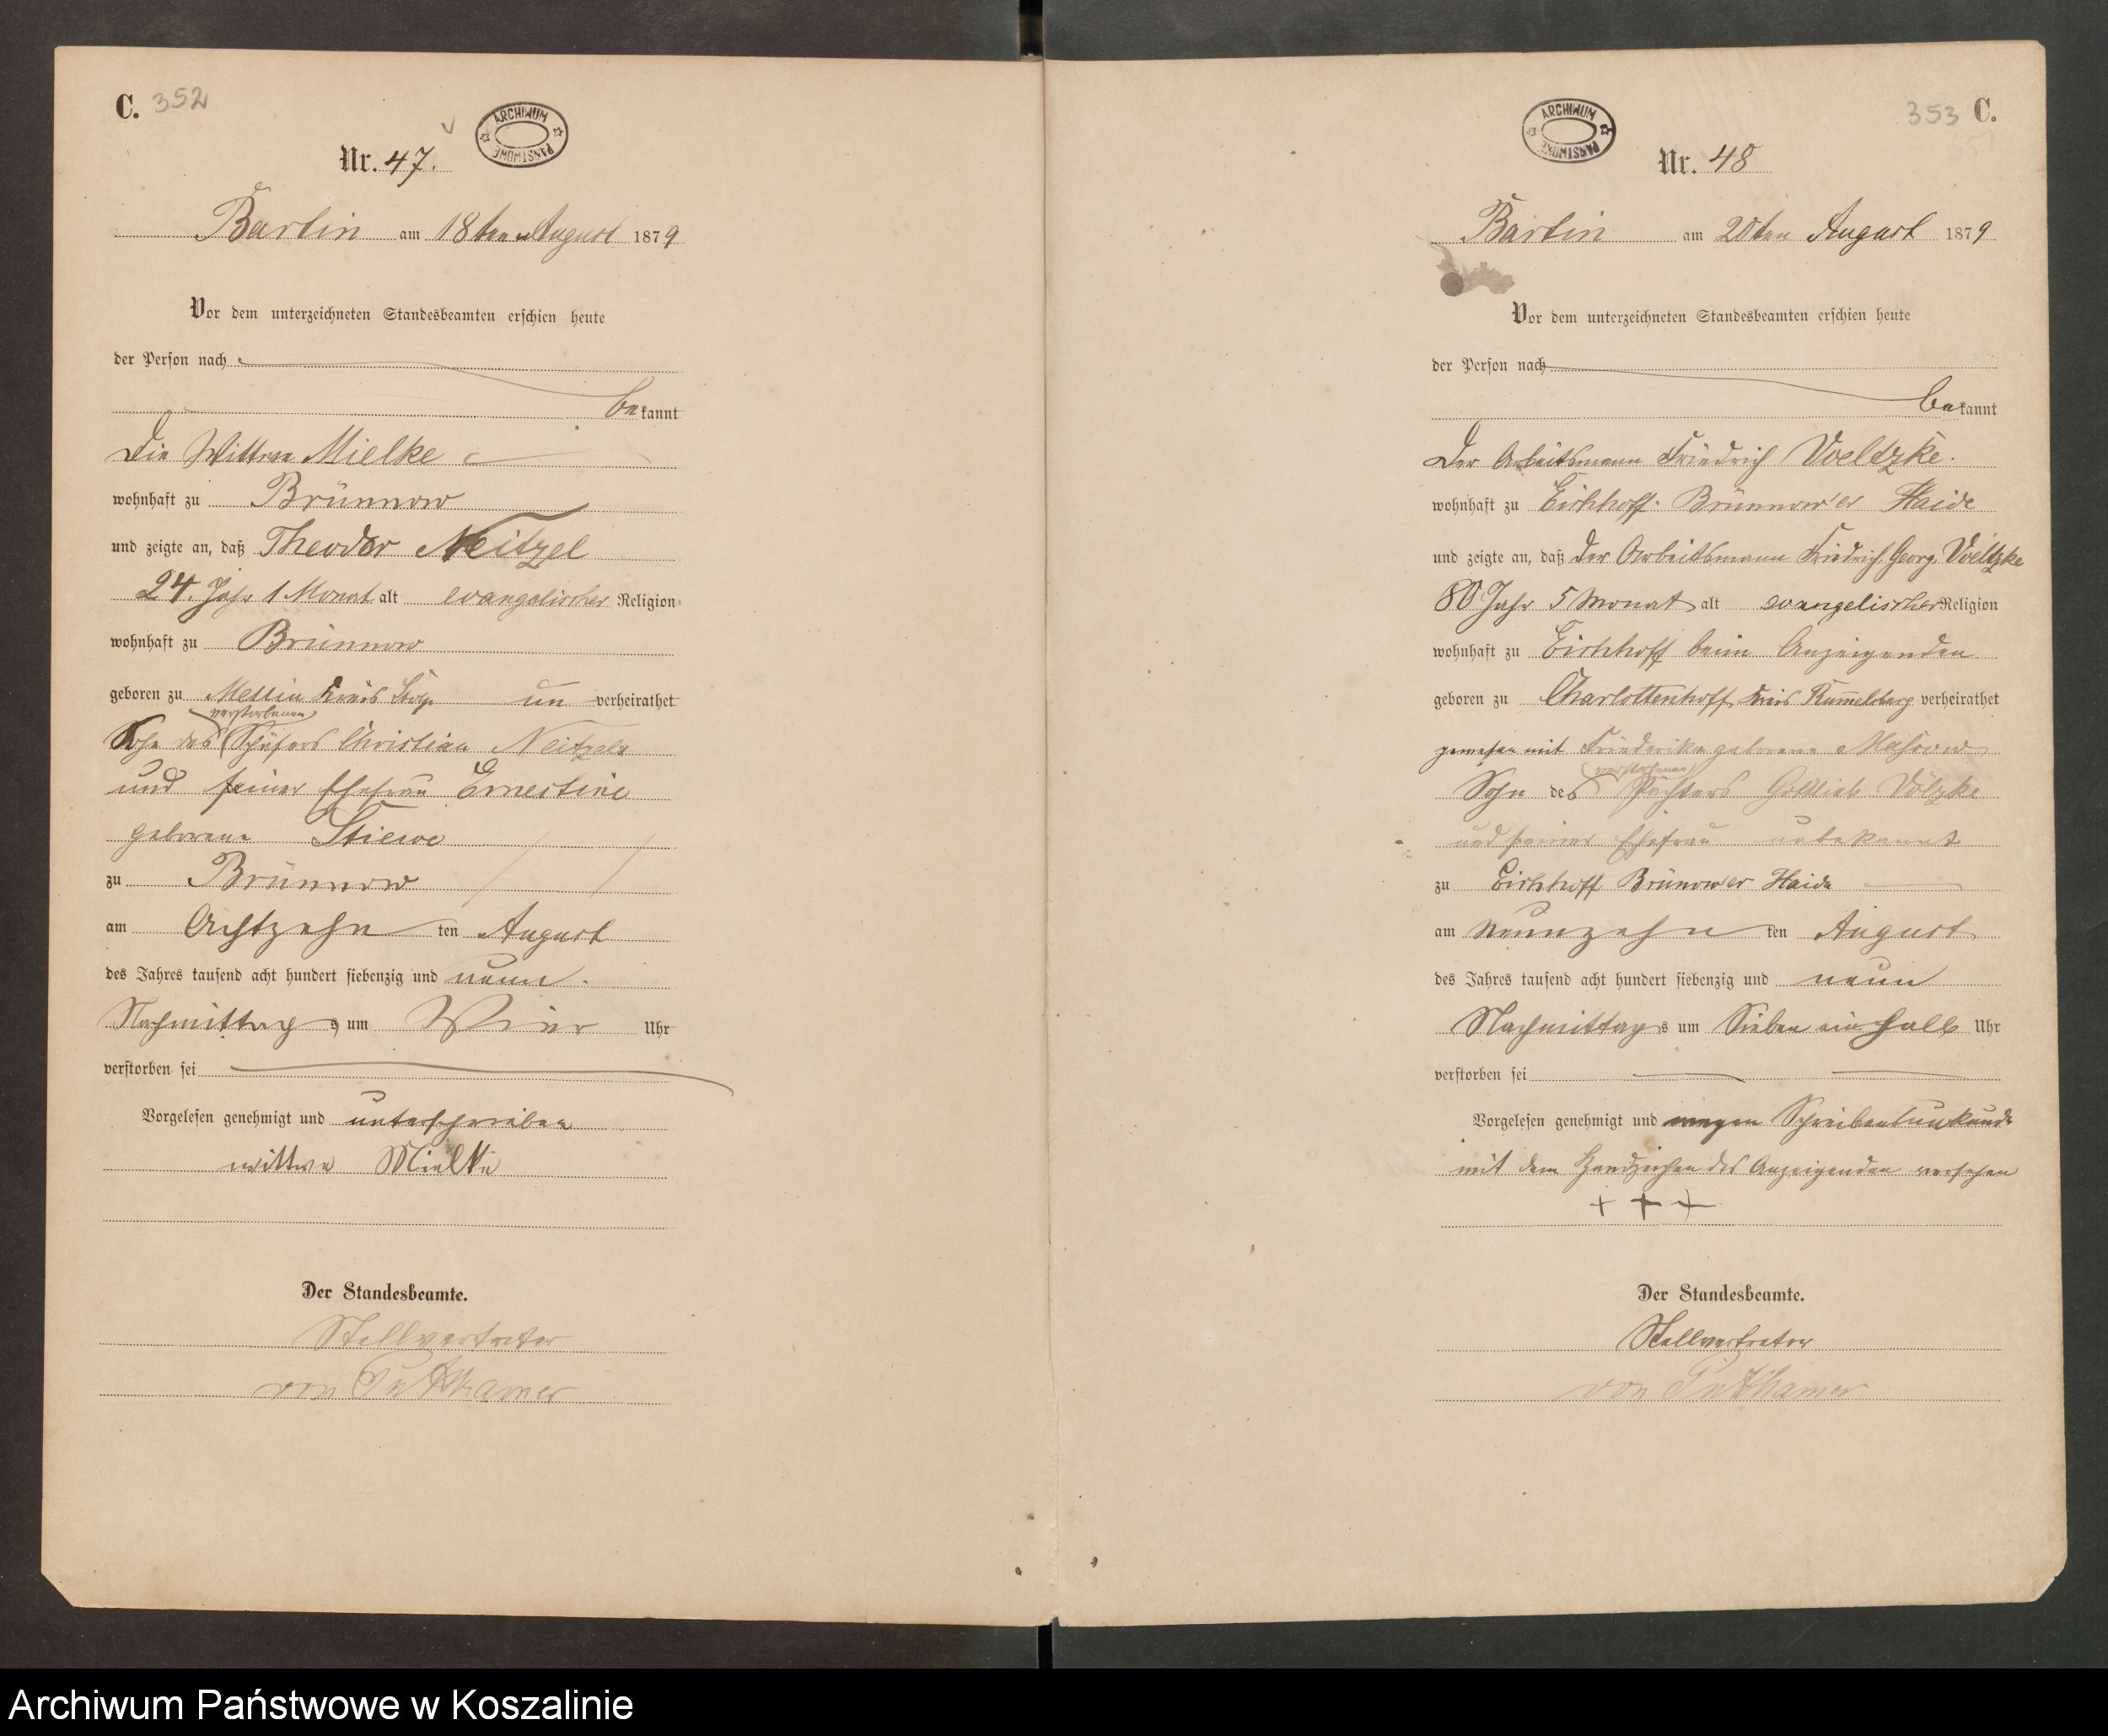 C. 352
ARCHIWUM PAŃSTWOWE
Nr. 47.
Bartin am 18ten August 1879
Vor dem unterzeichneten Standesbeamten erschien heute
der Person nach
bekannt
Die Wittwe Mielke
wohnhaft zu Brünnow
und zeigte an, daß Theodor Neitzel
24. Jahr 1 Monat alt evangelischer Religion
wohnhaft zu Brünnow
geboren zu Mellin Kreis Stolp un verheirathet
verstorbenen
Sohn des Schäfers Christian Neitzel
und seiner Ehefrau Ernestine
geborene Stiewe
zu Brünnow
am Achtzehn ten August
des Jahres tausend acht hundert siebenzig und neun.
Nachmittags um Vier Uhr
verstorben sei
Vorgelesen genehmigt und unterschrieben
wittwe Mielke
Der Standesbeamte.
Stellvertreter
von Puttkamer
353 C.
ARCHIWUM PAŃSTWOWE
Nr. 48
Bartin am 20ten August 1879
Vor dem unterzeichneten Standesbeamten erschien heute
der Person nach
bekannt
Der Arbeitsmann Friedrich Voeltzke.
wohnhaft zu Eichhoff. Brünnow'er Haide
und zeigte an, daß der Arbeitsmann Friedrich Georg Voeltzke
80 Jahr 5 Monat alt evangelischer Religion
wohnhaft zu Eichhoff beim Anzeigenden
geboren zu Charlottenhoff Kreis Rummelsburg verheirathet
gewesen mit Friederike geborene
verstorbenen
Sohn des Pächters Gottlieb Völzke
und seiner Ehefrau unbekannt
zu Eichhoff Brünow'er Haide
am Neunzehn ten August
des Jahres tausend acht hundert siebenzig und neun
Nachmittags um Sieben ein halb Uhr
verstorben sei
Vorgelesen genehmigt und wegen Schreibensunkunde
mit dem Handzeichen des Anzeigenden versehen
+ + +
Der Standesbeamte.
Stellvertreter
von Puttkamer
Archiwum Państwowe w Koszalinie